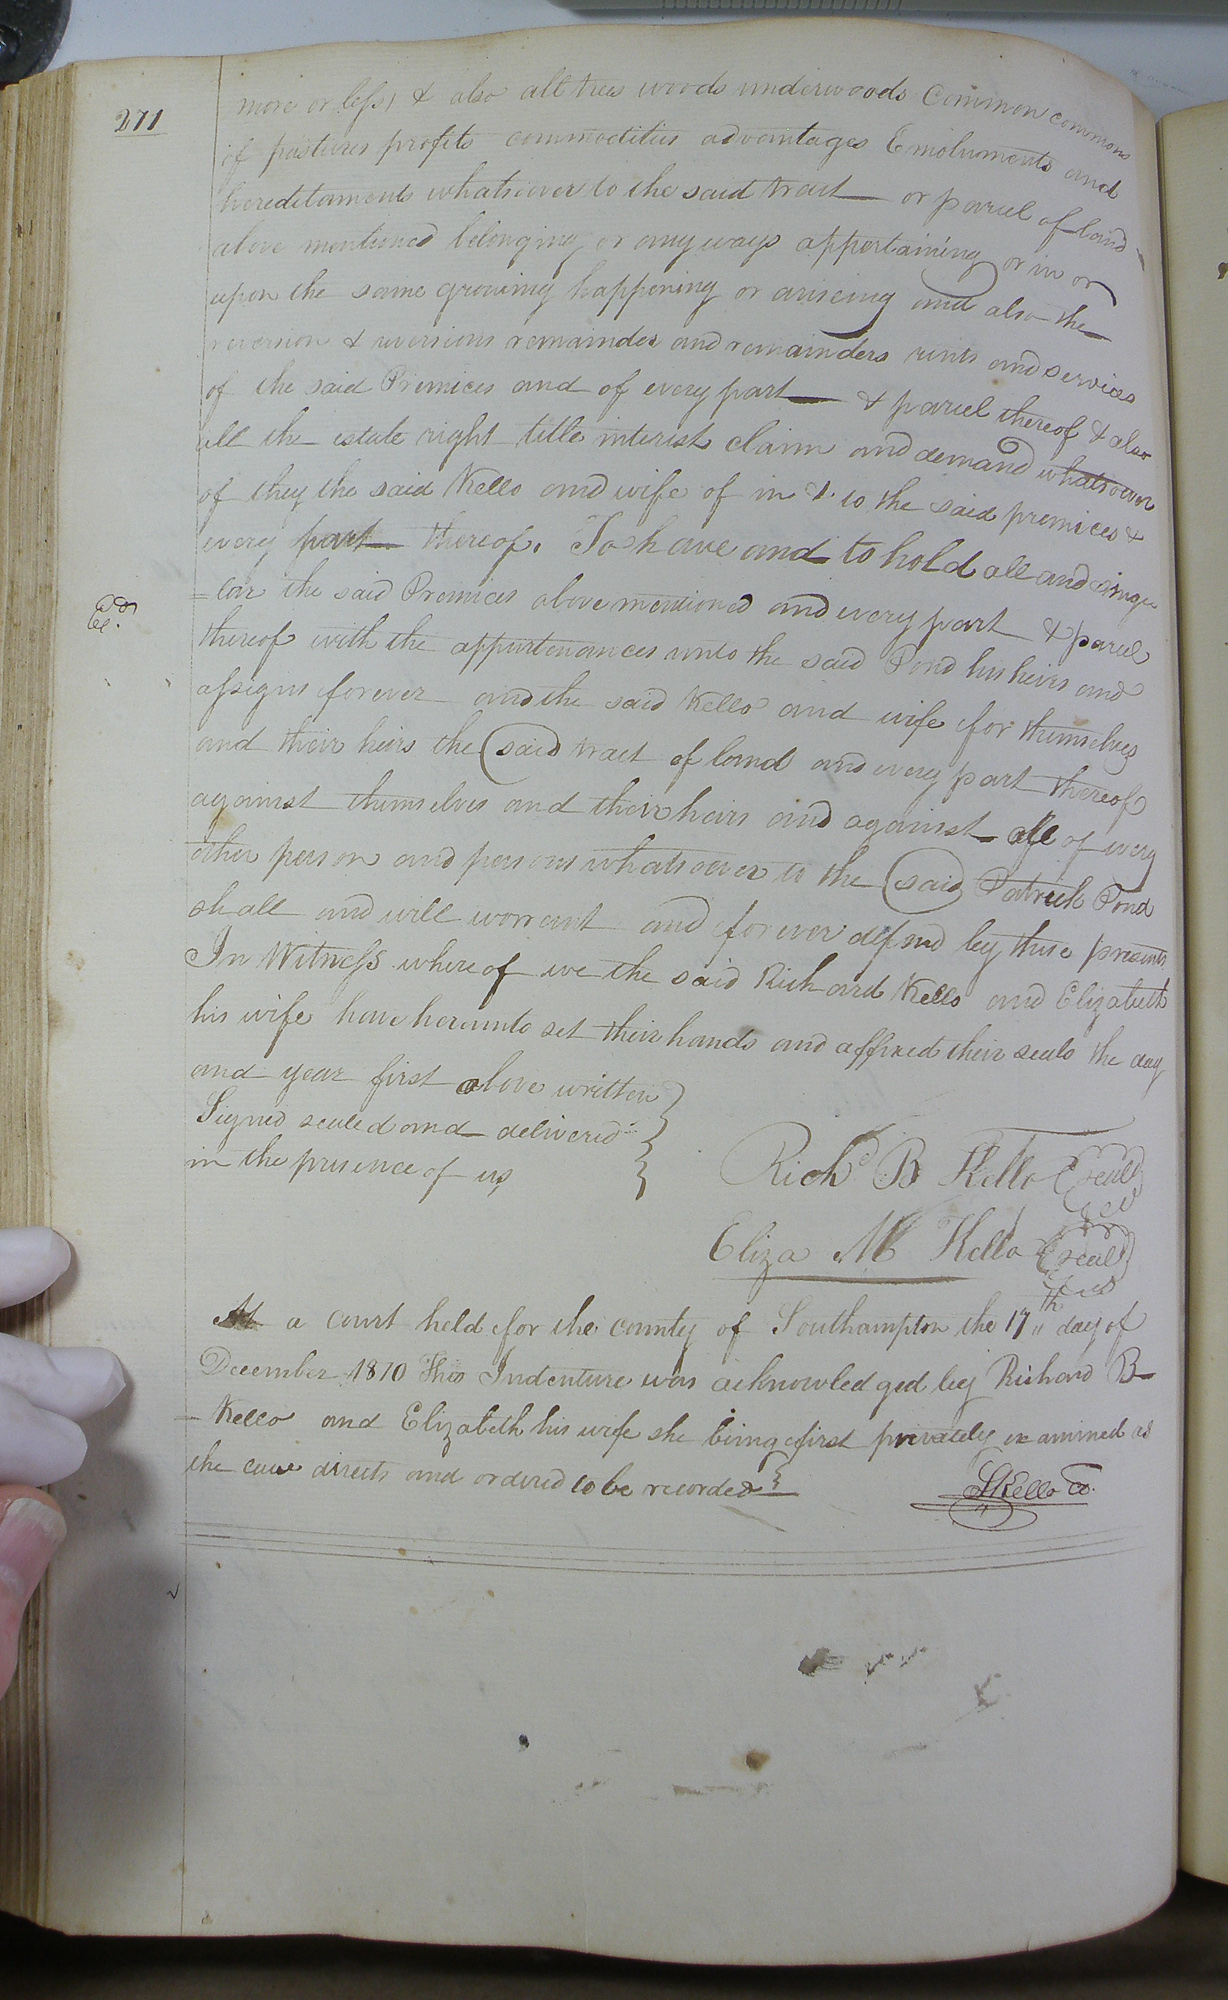 271
more or less, & also all trees woods underwoods Common commons
of pastures profits commodities advantages Emoluments and
hereditaments whatsoever to the said tract or parcel of land
above mentioned belonging or any ways appertaining or in or
upon the same growing happening or ariseing and also the
reversion & reversions remainder and remainders rents and services
of the said Premices and of every part & parcel thereof & also
all the estate right title interest claim and demand whatsoever
of they the said Kello and wife of in & to the said premices &
every part thereof. To have and to hold all and singu
=lar the said Premices above mentioned and every part & parcel
thereof with the appurtenances unto the said Pond his heirs and
assigns forever and the said Kello and wife for themselves
and their heirs the said tract of land and every part thereof
against themselves and their heirs and against all of every
other person and persons whatsoever to the said Patrick Pond
shall and will warrant and forever defend by these presents
In Witness whereof we the said Richard Kello and Elizabeth
his wife have hereunto set their hands and affixed their seals the day
and year first above written
Signed sealed and delivered
in the presence of us
Richd B Kello seal
Eliza M Kello seal
At a court held for the county of Southampton the 17th day of
December 1810 This Indenture was acknowledged by Richard B
Kello and Elizabeth his wife she being first privately examined as
the law directs and ordered to be recorded
SKello Cl.